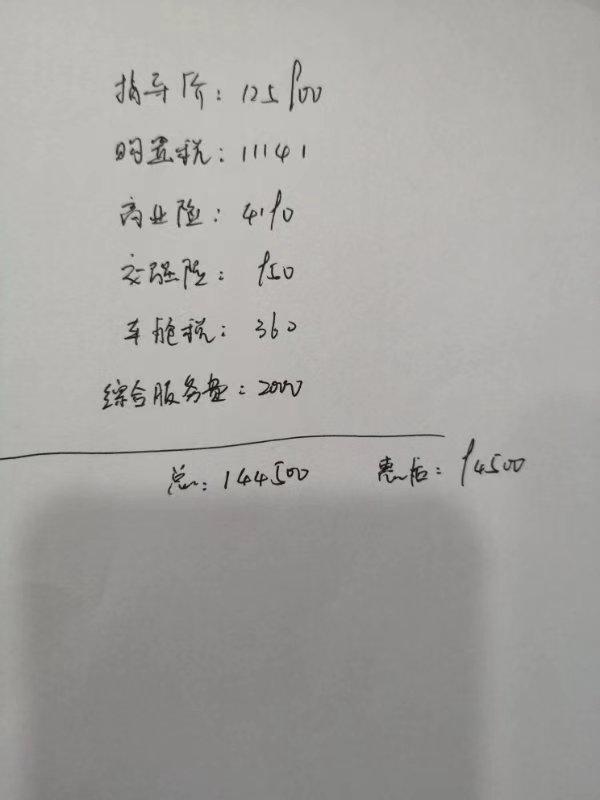 指导价：125900
购置税：11141
商业险：4190
交强险：950
车船税：360
综合服务费：2000
总：144500 惠后：94500